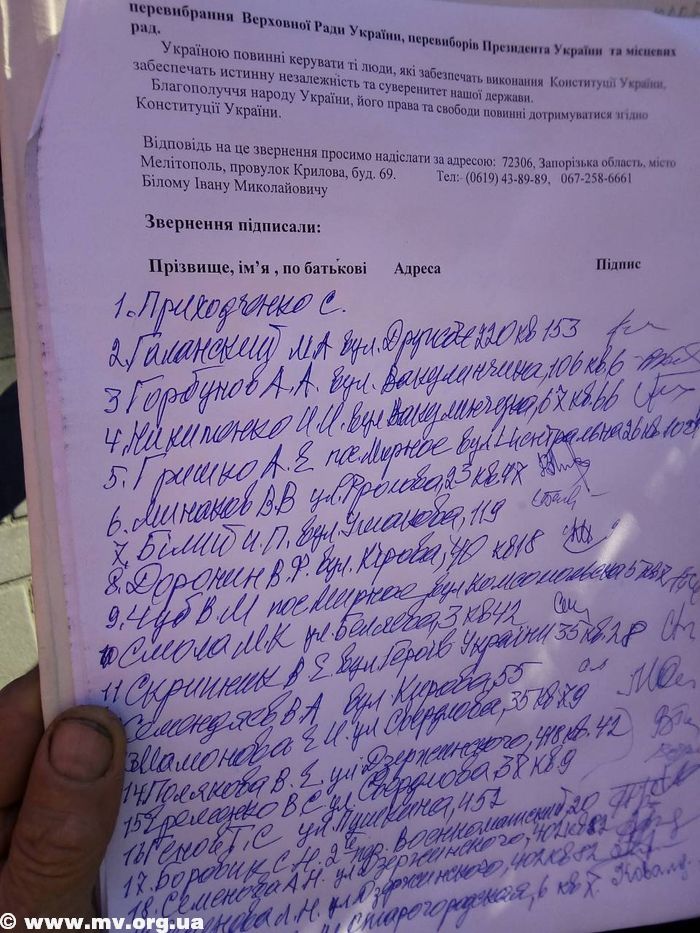 перевибрання Верховної Ради України, перевиборів Президента України та місцевих
рад.
Україною повинні керувати ті люди, які забезпечать виконання Конституції України,
забезпечать истинну незалежність та суверенитет нашої держави.
Благополуччя народу України, його права та свободи повинні дотримуватися згідно
Конституції України.
Відповідь на це звернення просимо надіслати за адресою: 72306, Запорізька область, місто
Мелітополь, провулок Крилова, буд. 69. Тел:- (0619) 43-89-89, 067-258-6661
Білому Івану Миколайовичу
Звернення підписали:
Прізвище, ім’я , по батькові Адреса Підпис
1. Приходченко С.
2. Галанский М А вул. 220 кв 153
3 Горбунов А. А. вул. Вакулинчина, 106 кв. 6
4. Никипонко И. И. вул 67 кв 66
5. Гришко А. Е пос Мирное вул Центральна 26 кв
6. Минаков В.В ул. Фролова, 23 кв. 47
7. Білий И. П. вул. Ушакова, 119
8. Доронин В. Ф. вул. Кірова, 40 кв 18
9. Чуб В. М пос Мирное вул комсомольська
10 Смола М. К ул. Беляева, 3 кв 42
11 Скрипник В Е. вул Героїв України 35 кв. 28
В А вул Кирова, 55
13 Мамонова Е И. ул Свердлова, 35 кв. 79
14. Полякова В. Е. ул Дзержинского, 418 кв. 42
15 В С ул. Свердлова 38 кв 9
16 С ул. Пушкина, 452
17. Боровик С. Н. 2й пер. Военкоматский 20
18. Семенова А Н. ул Дзержинского, 402 кв 82
Л. Н. ул Дзержинского, 402 кв 82
Старогородская, 6 кв
© www.mv.org.ua